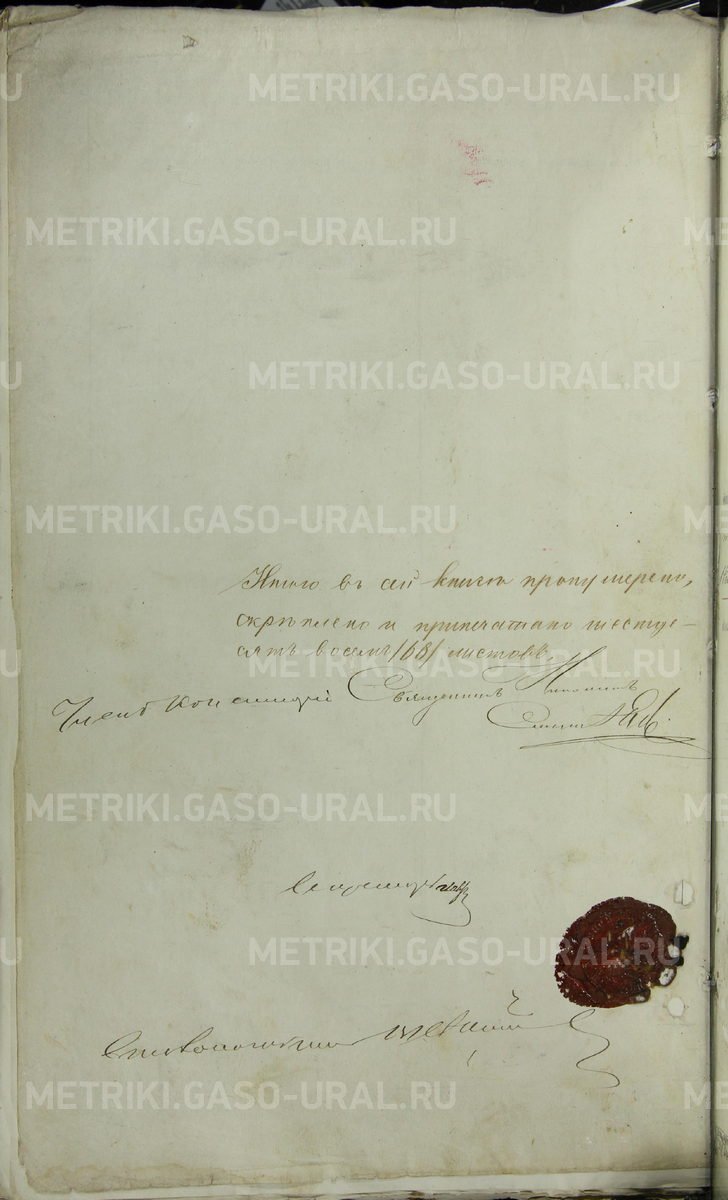 METRIKI.GASO-URAL.RU
METRIKI.GASO-URAL.RU
METRIKI.GASO-URAL.RU
METRIKI.GASO-URAL.RU
Итого въ сей книгѣ пронумерено,
скрѣплено и припечатано шестьде-
сятъ восемь /68/ листовъ.
Членъ Консисторіи Священникъ
METRIKI.GASO-URAL.RU
Секретарь
METRIKI.GASO-URAL.RU
Столоначальникъ
METRIKI.GASO-URAL.RU